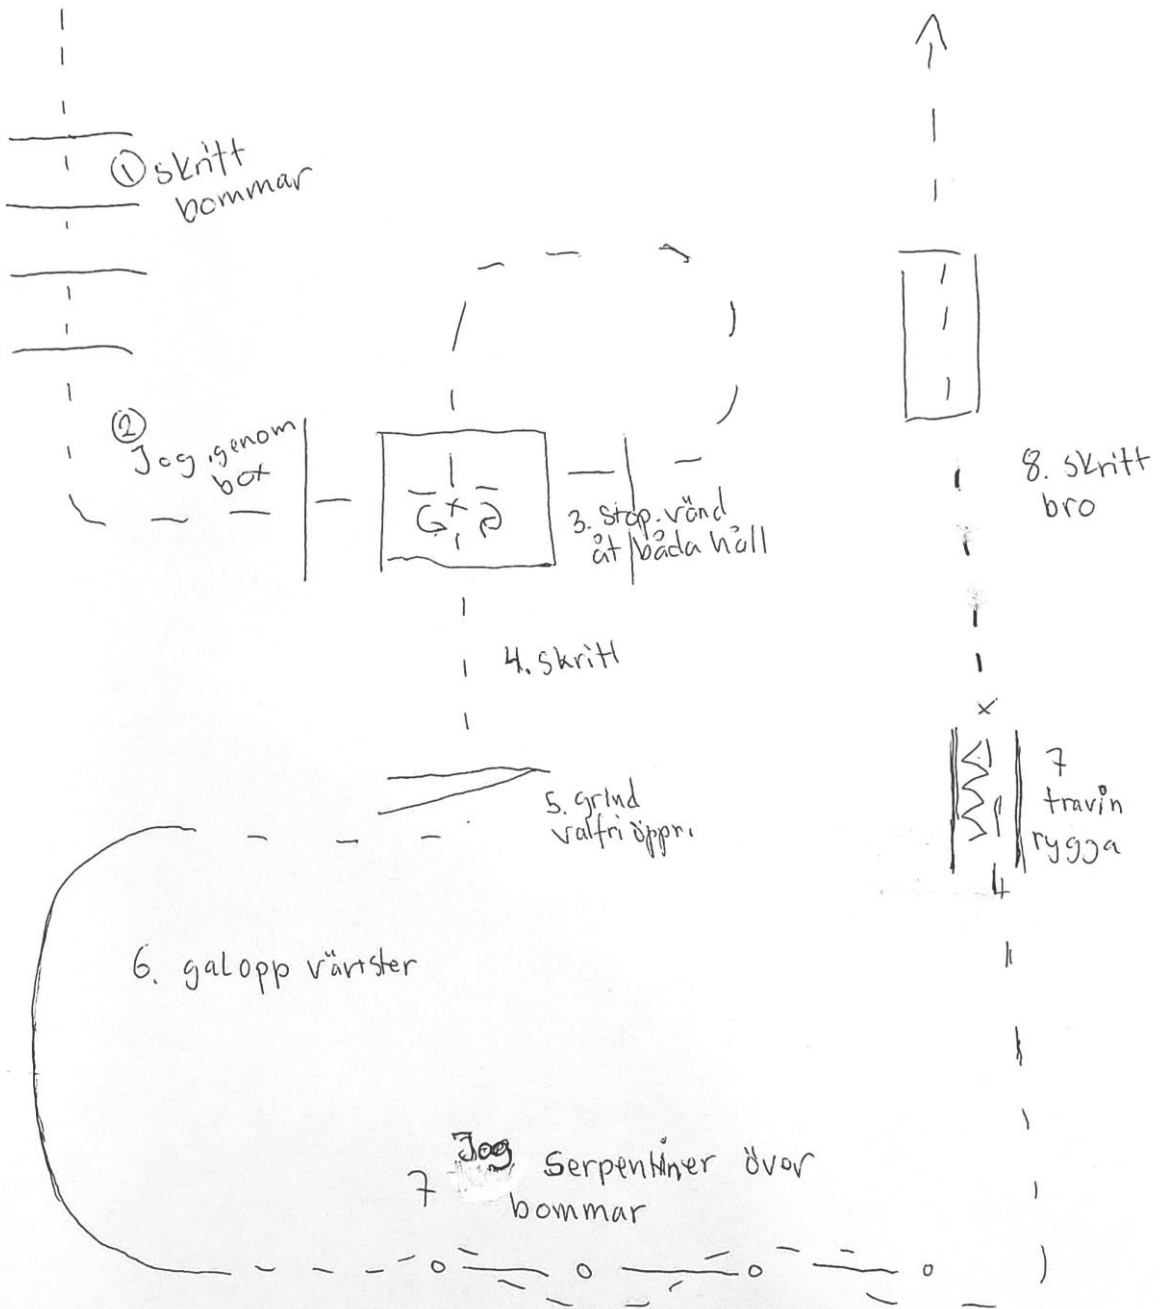 ① skritt
bommar
②
Jog genom
box
3. Stop. vänd
åt båda håll
4. skritt
5. grind
valfri öppn.
6. galopp vänster
7 Jog Serpentiner över
bommar
7
trav in
rygga
8. skritt
bro